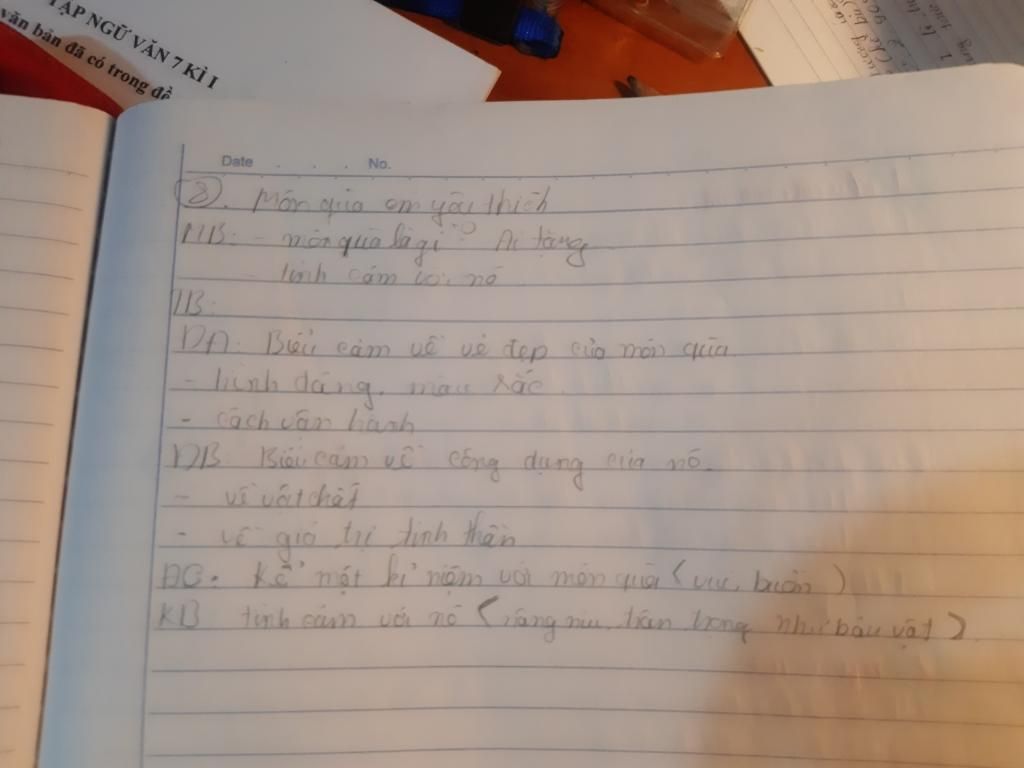 TẬP NGỮ VĂN 7 KÌ I
văn bản đã có trong đề
Date . . . No.
8. Món quà em yêu thích
MB: - món quà là gì? Ai tặng
- tình cảm với nó
TB:
ĐA: Biểu cảm về vẻ đẹp của món quà
- hình dáng, màu sắc.
- cách vận hành
ĐB: Biểu cảm về công dụng của nó.
- về vật chất
- về giá trị tinh thần
ĐC: Kể một kỉ niệm với món quà (vui, buồn)
KB tình cảm với nó (nâng niu, trân trọng như báu vật)